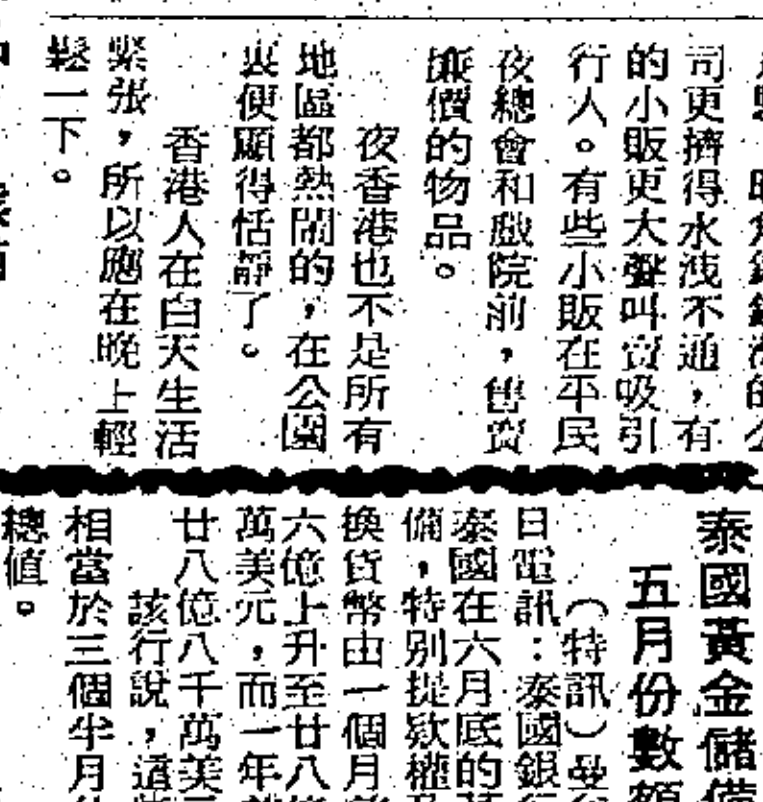 司更擠得水洩不通，有
的小販更大聲叫賣吸引
行人。有些小販在平民
夜總會和戲院前，售賣
廉價的物品。
夜香港也不是所有
地區都熱鬧的，在公園
裏便顯得恬靜了。
香港人在白天生活
緊張，所以應在晚上輕
鬆一下。
泰國黃金儲備
五月份數額
（特訊）曼
日電訊：泰國銀行
泰國在六月底的
備，特別提欵權
換貨幣由一個月
六億上升至廿八億
萬美元，而一年
廿八億八千萬美元
該行說，這
相當於三個半月
總值。